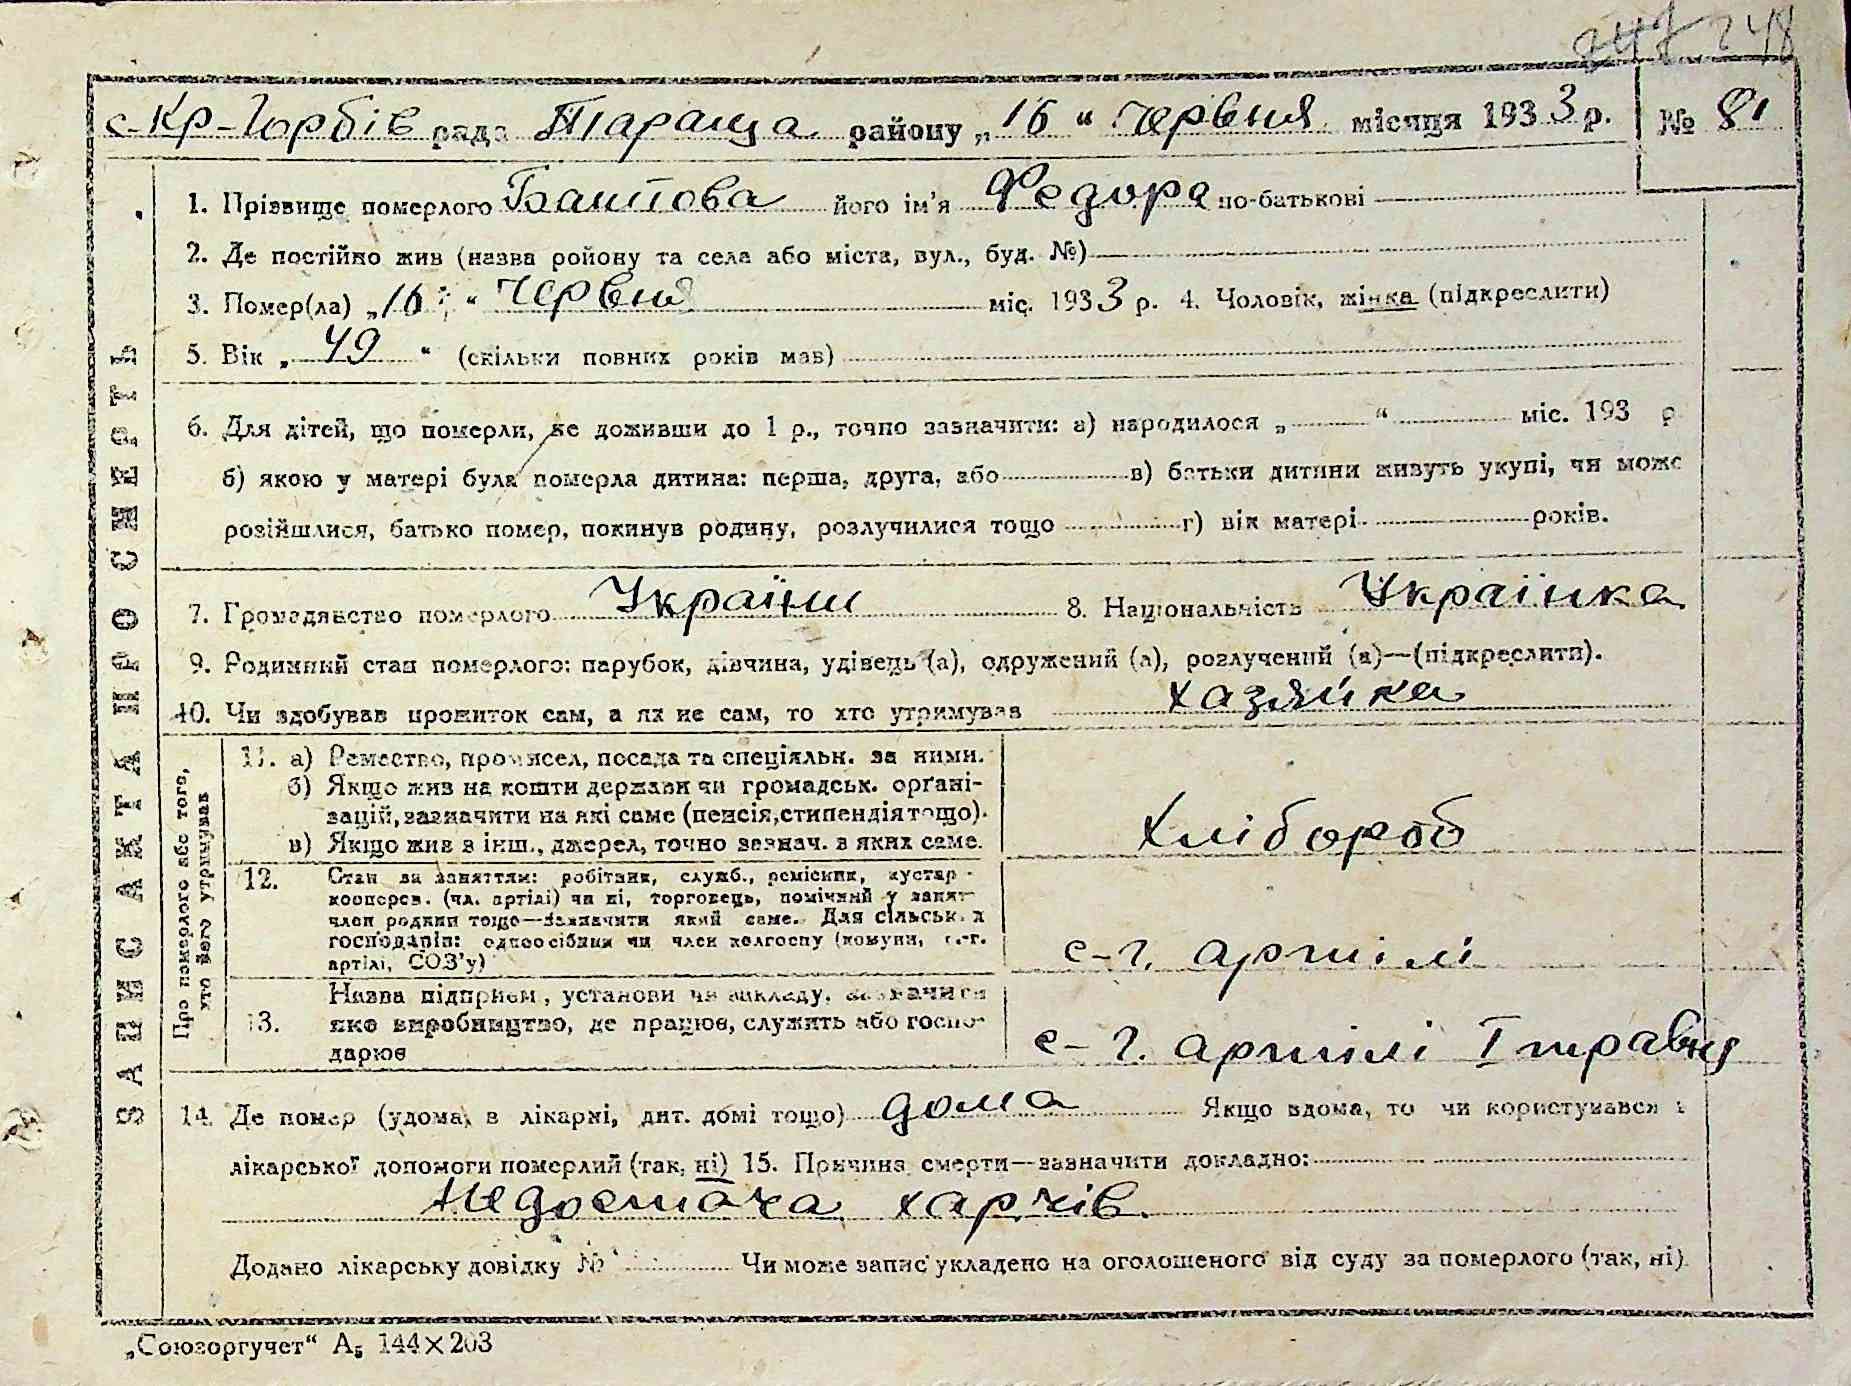 247 248
с-Кр-Горбів рада Тараща району „16“ червня місяця 1933 р. № 81
1. Прізвище померлого Баштова його ім'я Федора по-батькові
2. Де постійно жив (назва ройону та села або міста, вул., буд. №)
3. Помер(ла) „16“ червня міс. 1933 р. 4. Чоловік, жінка (підкреслити)
5. Вік „49“ (скільки повних років мав)
6. Для дітей, що померли, не доживши до 1 р., точно зазначити: а) народилося „ “ міс. 193 р
б) якою у матері була померла дитина: перша, друга, або в) батьки дитини живуть укупі, чи може
розійшлися, батько помер, покинув родину, розлучилися тощо г) вік матері років.
7. Громадянство померлого України 8. Національність Українка
9. Родинний стан померлого: парубок, дівчина, удівець (а), одружений (а), розлучений (а)—(підкреслити).
10. Чи здобував прожиток сам, а як не сам, то хто утримував хазяйка
ЗАПИС АКТА ПРО СМЕРТЬ
Про померлого або того, хто його утримував
11. а) Ремество, промисел, посада та спеціяльн. за ними.
б) Якщо жив на кошти держави чи громадськ. органі-
зацій, зазначити на які саме (пенсія, стипендія тощо).
в) Якщо жив з інш., джерел, точно зазнач. з яких саме.
Хлібороб
12. Стан за заняттям: робітник, служб., ремісник, кустар -
кооперов. (чл. артілі) чи ні, торговець, помічний у занят-
член родини тощо—зазначити який саме. Для сільськ. х
господарів: одноосібник чи член колгоспу (комуни, с.-г.
артілі, СОЗ'у)
с-г. артілі
13. Назва підприєм., установи чи закладу, зазначити
яке виробництво, де працює, служить або госпо-
дарює
с-г. артілі 1 травня
14. Де помер (удома, в лікарні, дит. домі тощо) дома Якщо вдома, то чи користувався з
лікарської допомоги померлий (так, ні) 15. Причина смерти—зазначити докладно:
Недостача харчів.
Додано лікарську довідку № Чи може запис укладено на оголошеного від суду за померлого (так, ні)
„Союзоргучет“ А5 144×203